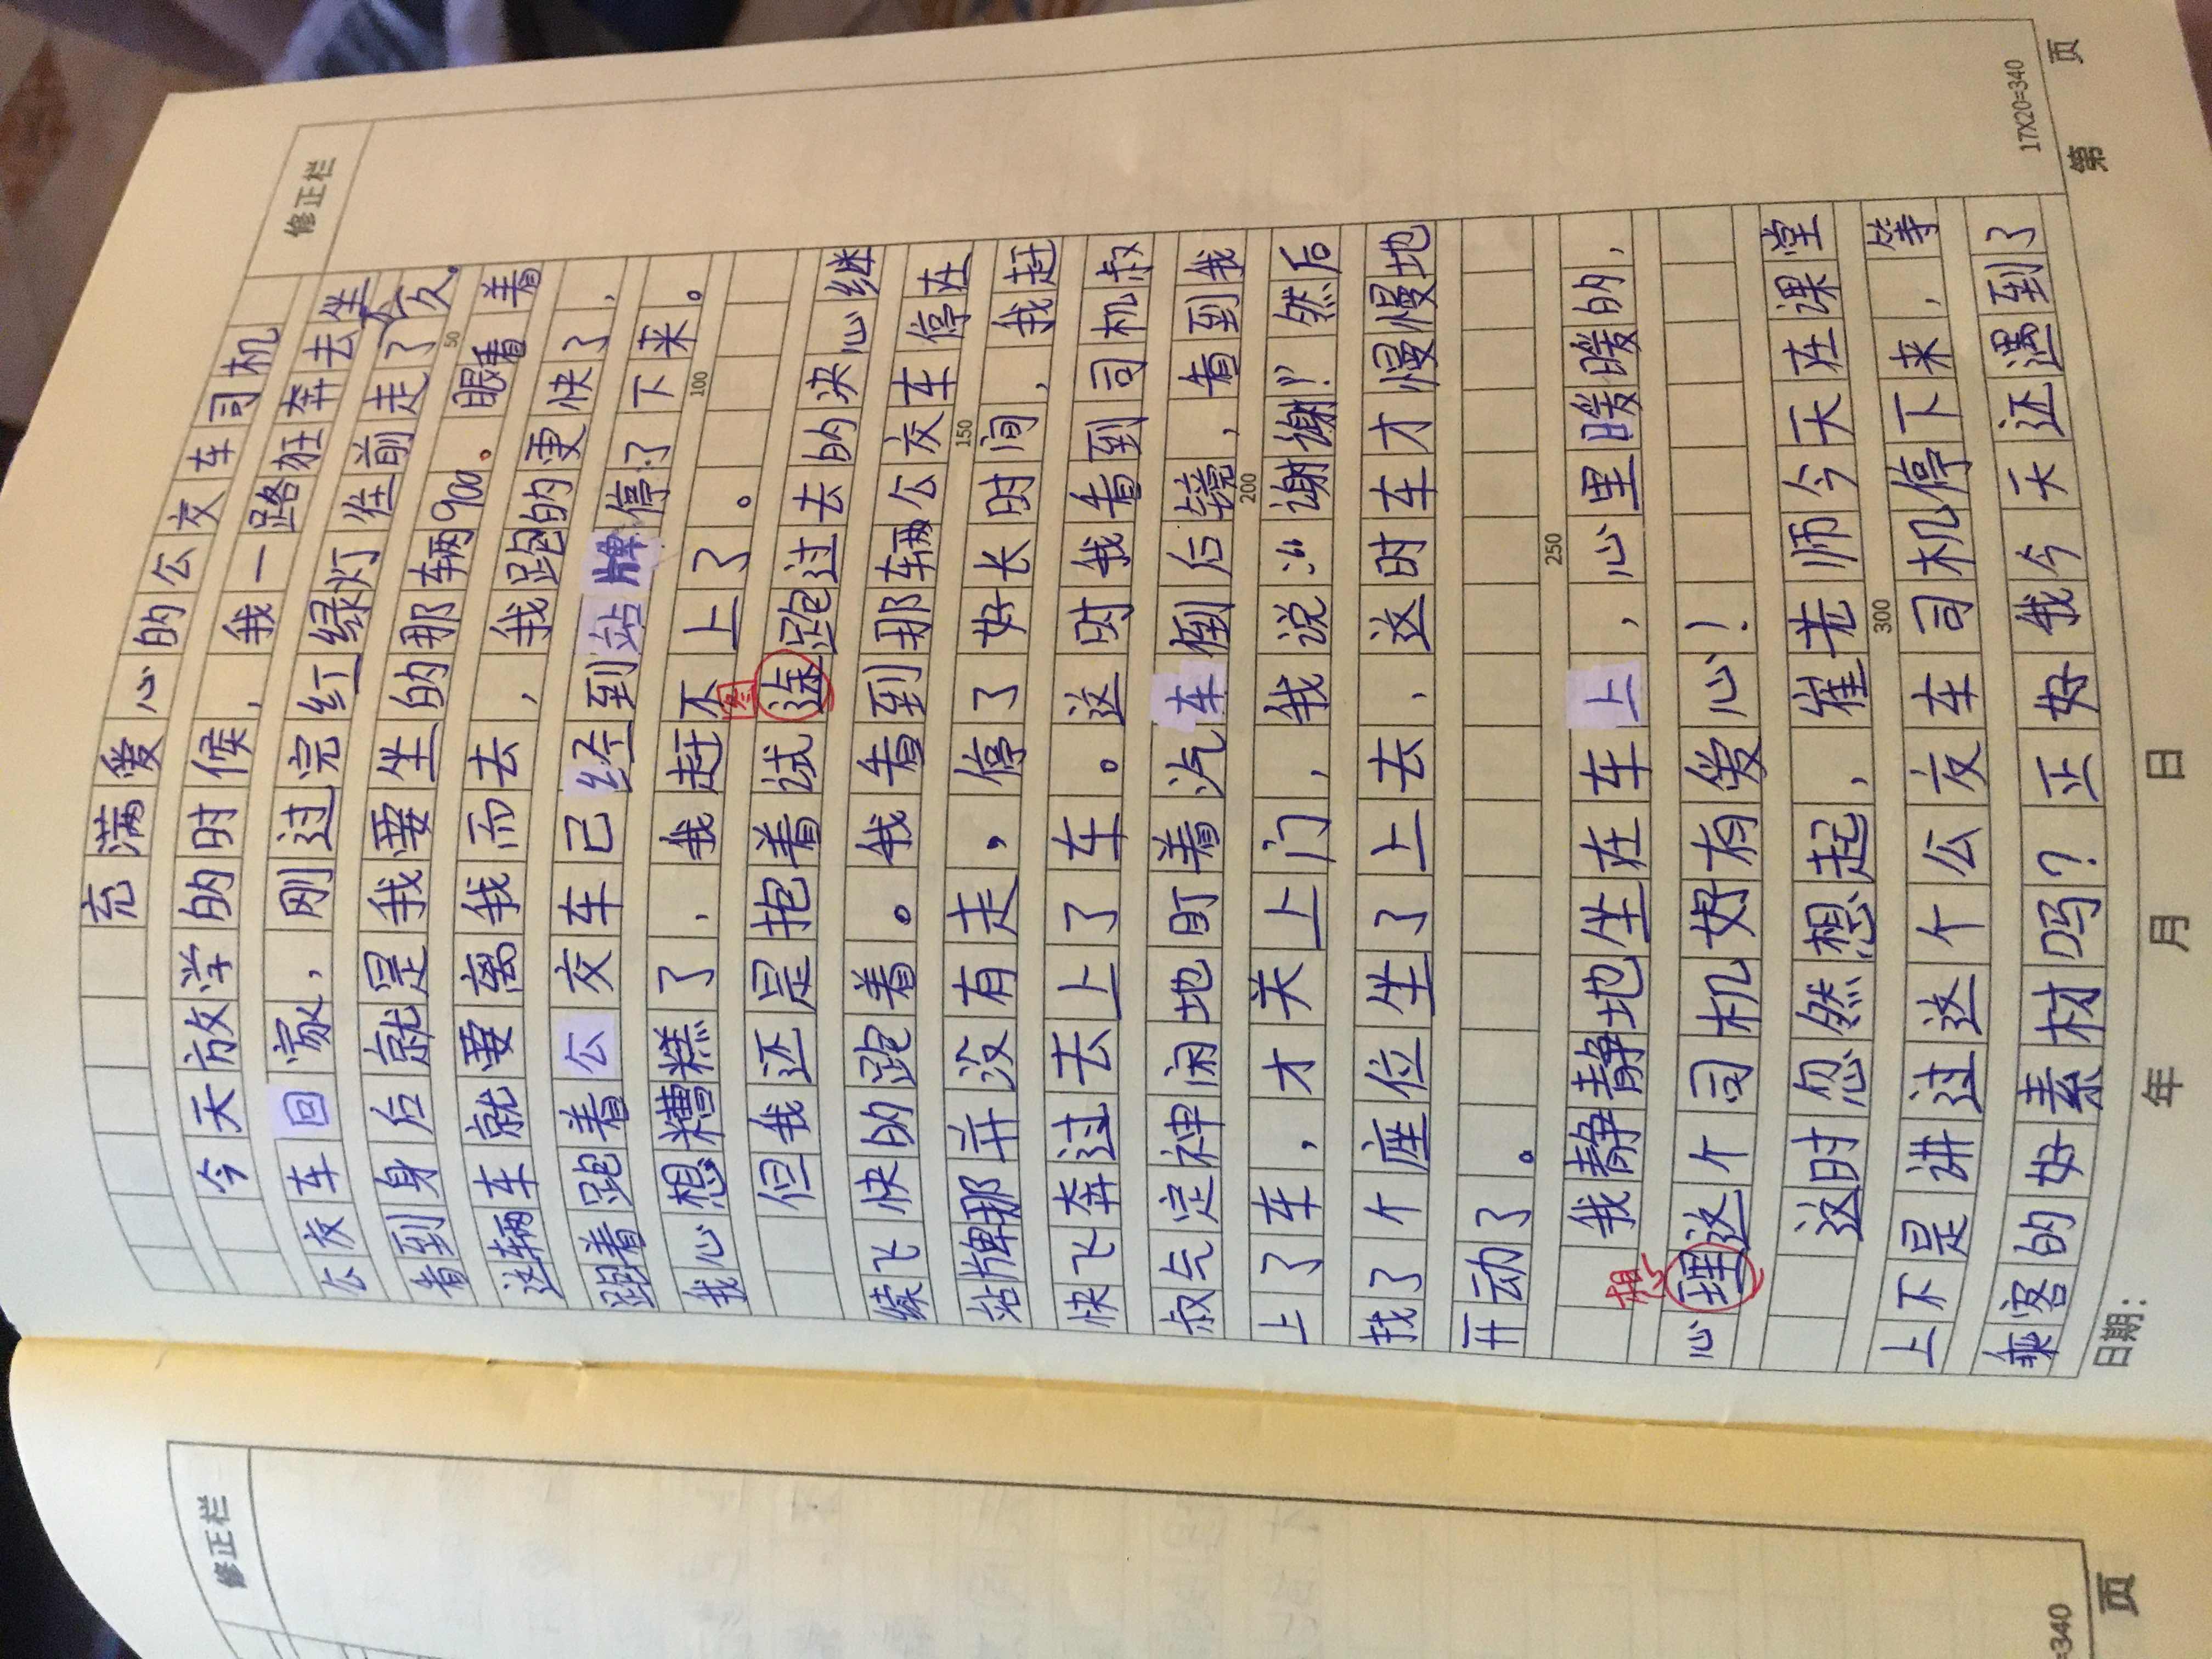 充满爱心的公交车司机
修正栏
今天放学的时候，我一路狂奔去坐
公交车回家，刚过完红绿灯往前走了不久。
看到身后就是我要坐的那辆900。眼看着
50
这辆车就要离我而去，我跑的更快了，
跑着跑着公交车已经到站牌停了下来。
我心想糟糕了，我赶不上了。
100
但我还是抱着试途跑过去的决心继
续飞快的跑着。我看到那辆公交车停在
站牌那并没有走，停了好长时间，我赶
150
快飞奔过去上了车。这时我看到司机叔
叔气定神闲地盯着汽车倒后镜，看到我
上了车，才关上门，我说：“谢谢！”然后
200
找了个座位坐了上去，这时车才慢慢地
开动了。
我静静地坐在车上，心里暖暖的，
250
想
心理这个司机好有爱心！
这时忽然想起，崔老师今天在课堂
上不是讲过这个公交车司机停下来，等
300
乘客的好素材吗？正好我今天还遇到了
17X20=340
日期： 年 月 日 第 页
修正栏
=340
页